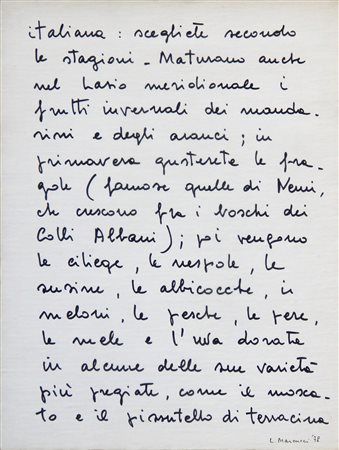 italiana : scegliete secondo
le stagioni - Maturano anche
nel Lazio meridionale i
frutti invernali dei manda-
rini e degli aranci ; in
primavera gusterete le fra-
gole ( famose quelle di Nemi,
che crescono fra i boschi dei
Colli Albani ) ; poi vengono
le ciliege, le nespole, le
susine, le albicocche, i
meloni, le pesche, le pere,
le mele e l'uva dorata
in alcune delle sue varietà
più pregiate, come il mosca-
to e il pizzutello di terracina
L. Marcucci '78